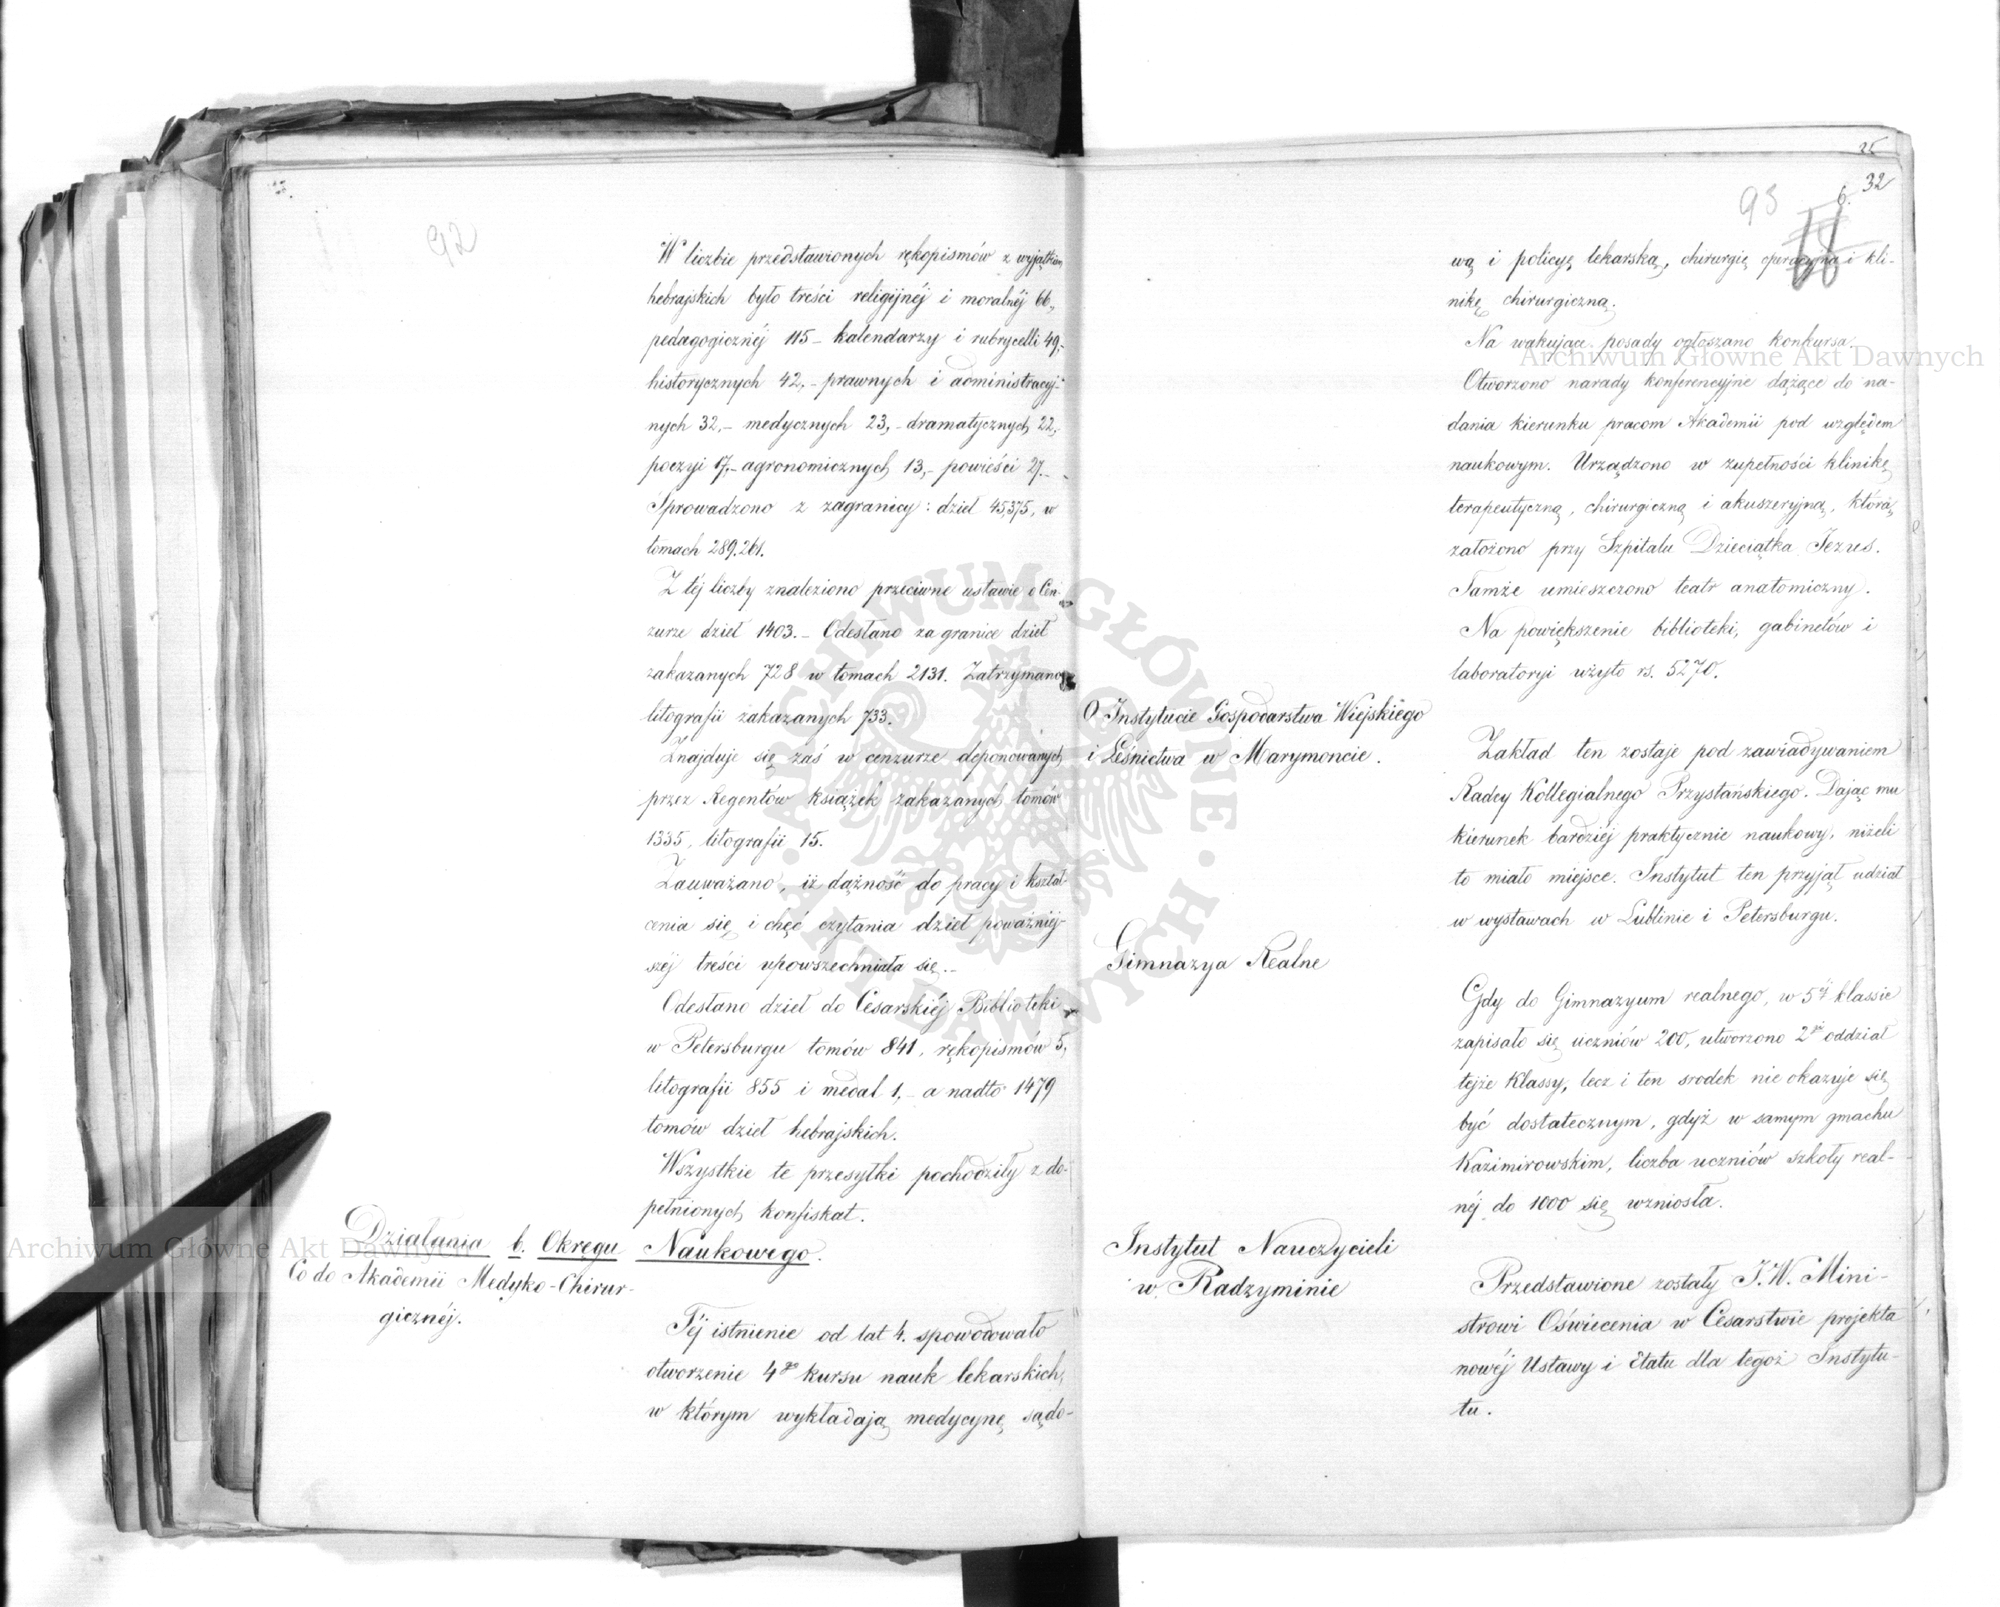 92
W liczbie przedstawionych rękopismów z wyjątkiem
hebrajskich było treści religijnéj i moralnéj 66,
pedagogicznéj 115 – kalendarzy i rubrycelli 49,–
historycznych 42, – prawnych i administracyj-
nych 32, – medycznych 23, – dramatycznych 22,–
poezyi 17, – agronomicznych 13, – powieści 27. –
Sprowadzono z zagranicy: dzieł 45,375, w
tomach 289.261.
Z téj liczby znaleziono przeciwne ustawie o Cen-
zurze dzieł 1403. – Odesłano za granice dzieł
zakazanych 728 w tomach 2131. Zatrzymano
litografii zakazanych 733.
Znajduje się zaś w cenzurze deponowanych
przez Regentów książek zakazanych tomów
1335, litografii 15.
Zauważano, iż dążność do pracy i kształ-
cenia się i chęć czytania dzieł poważniej-
széj treści upowszechniała się. –
Odesłano dzieł do Cesarskiéj Biblioteki
w Petersburgu tomów 841, rękopismów 5,
litografii 855 i medal 1, – a nadto 1479
tomów dzieł hebrajskich.
Wszystkie te przesyłki pochodziły z do-
pełnionych konfiskat.
Działania b. Okręgu Naukowego.
Co do Akademii Medyko-Chirur-
gicznéj.
Téj istnienie od lat 4. spowodowało
otworzenie 4go kursu nauk lekarskich,
w którym wykładają medycynę sądo-
25
32
93
6.
68
wą i policyę lekarską, chirurgię operacyjną i kli-
nikę chirurgiczną.
Na wakujące posady ogłoszano konkursa.
Otworzono narady konferencyjne dążące do na-
dania kierunku pracom Akademii pod względem
naukowym. Urządzono w zupełności klinikę
terapeutyczną, chirurgiczną i akuszeryjną, którą
założono przy Szpitalu Dzieciątka Jezus.
Tamże umieszczono teatr anatomiczny.
Na powiększenie biblioteki, gabinetów i
laboratoryi użyto rs. 5270.
O Instytucie Gospodarstwa Wiejskiego
i Leśnictwa w Marymoncie.
Zakład ten zostaje pod zawiadywaniem
Radcy Kollegialnego Przystańskiego. Dając mu
kierunek bardziéj praktycznie naukowy, niżeli
to miało miejsce. Instytut ten przyjął udział
w wystawach w Lublinie i Petersburgu.
Gimnazya Realne
Gdy do Gimnazyum realnego, w 5éj klassie
zapisało się uczniów 200, utworzono 2gi oddział
tejże klassy, lecz i ten srodek nie okazuje się
być dostatecznym, gdyż w samym gmachu
Kazimirowskim, liczba uczniów szkoły real-
néj do 1000 się wzniosła.
Instytut Nauczycieli
w Radzyminie
Przedstawione zostały J.W. Mini-
strowi Oświecenia w Cesarstwie projekta
nowéj Ustawy i Etatu dla tegoż Instytu-
tu.
Archiwum Główne Akt Dawnych
Archiwum Główne Akt Dawnych
ARCHIWUM GŁÓWNE AKT DAWNYCH